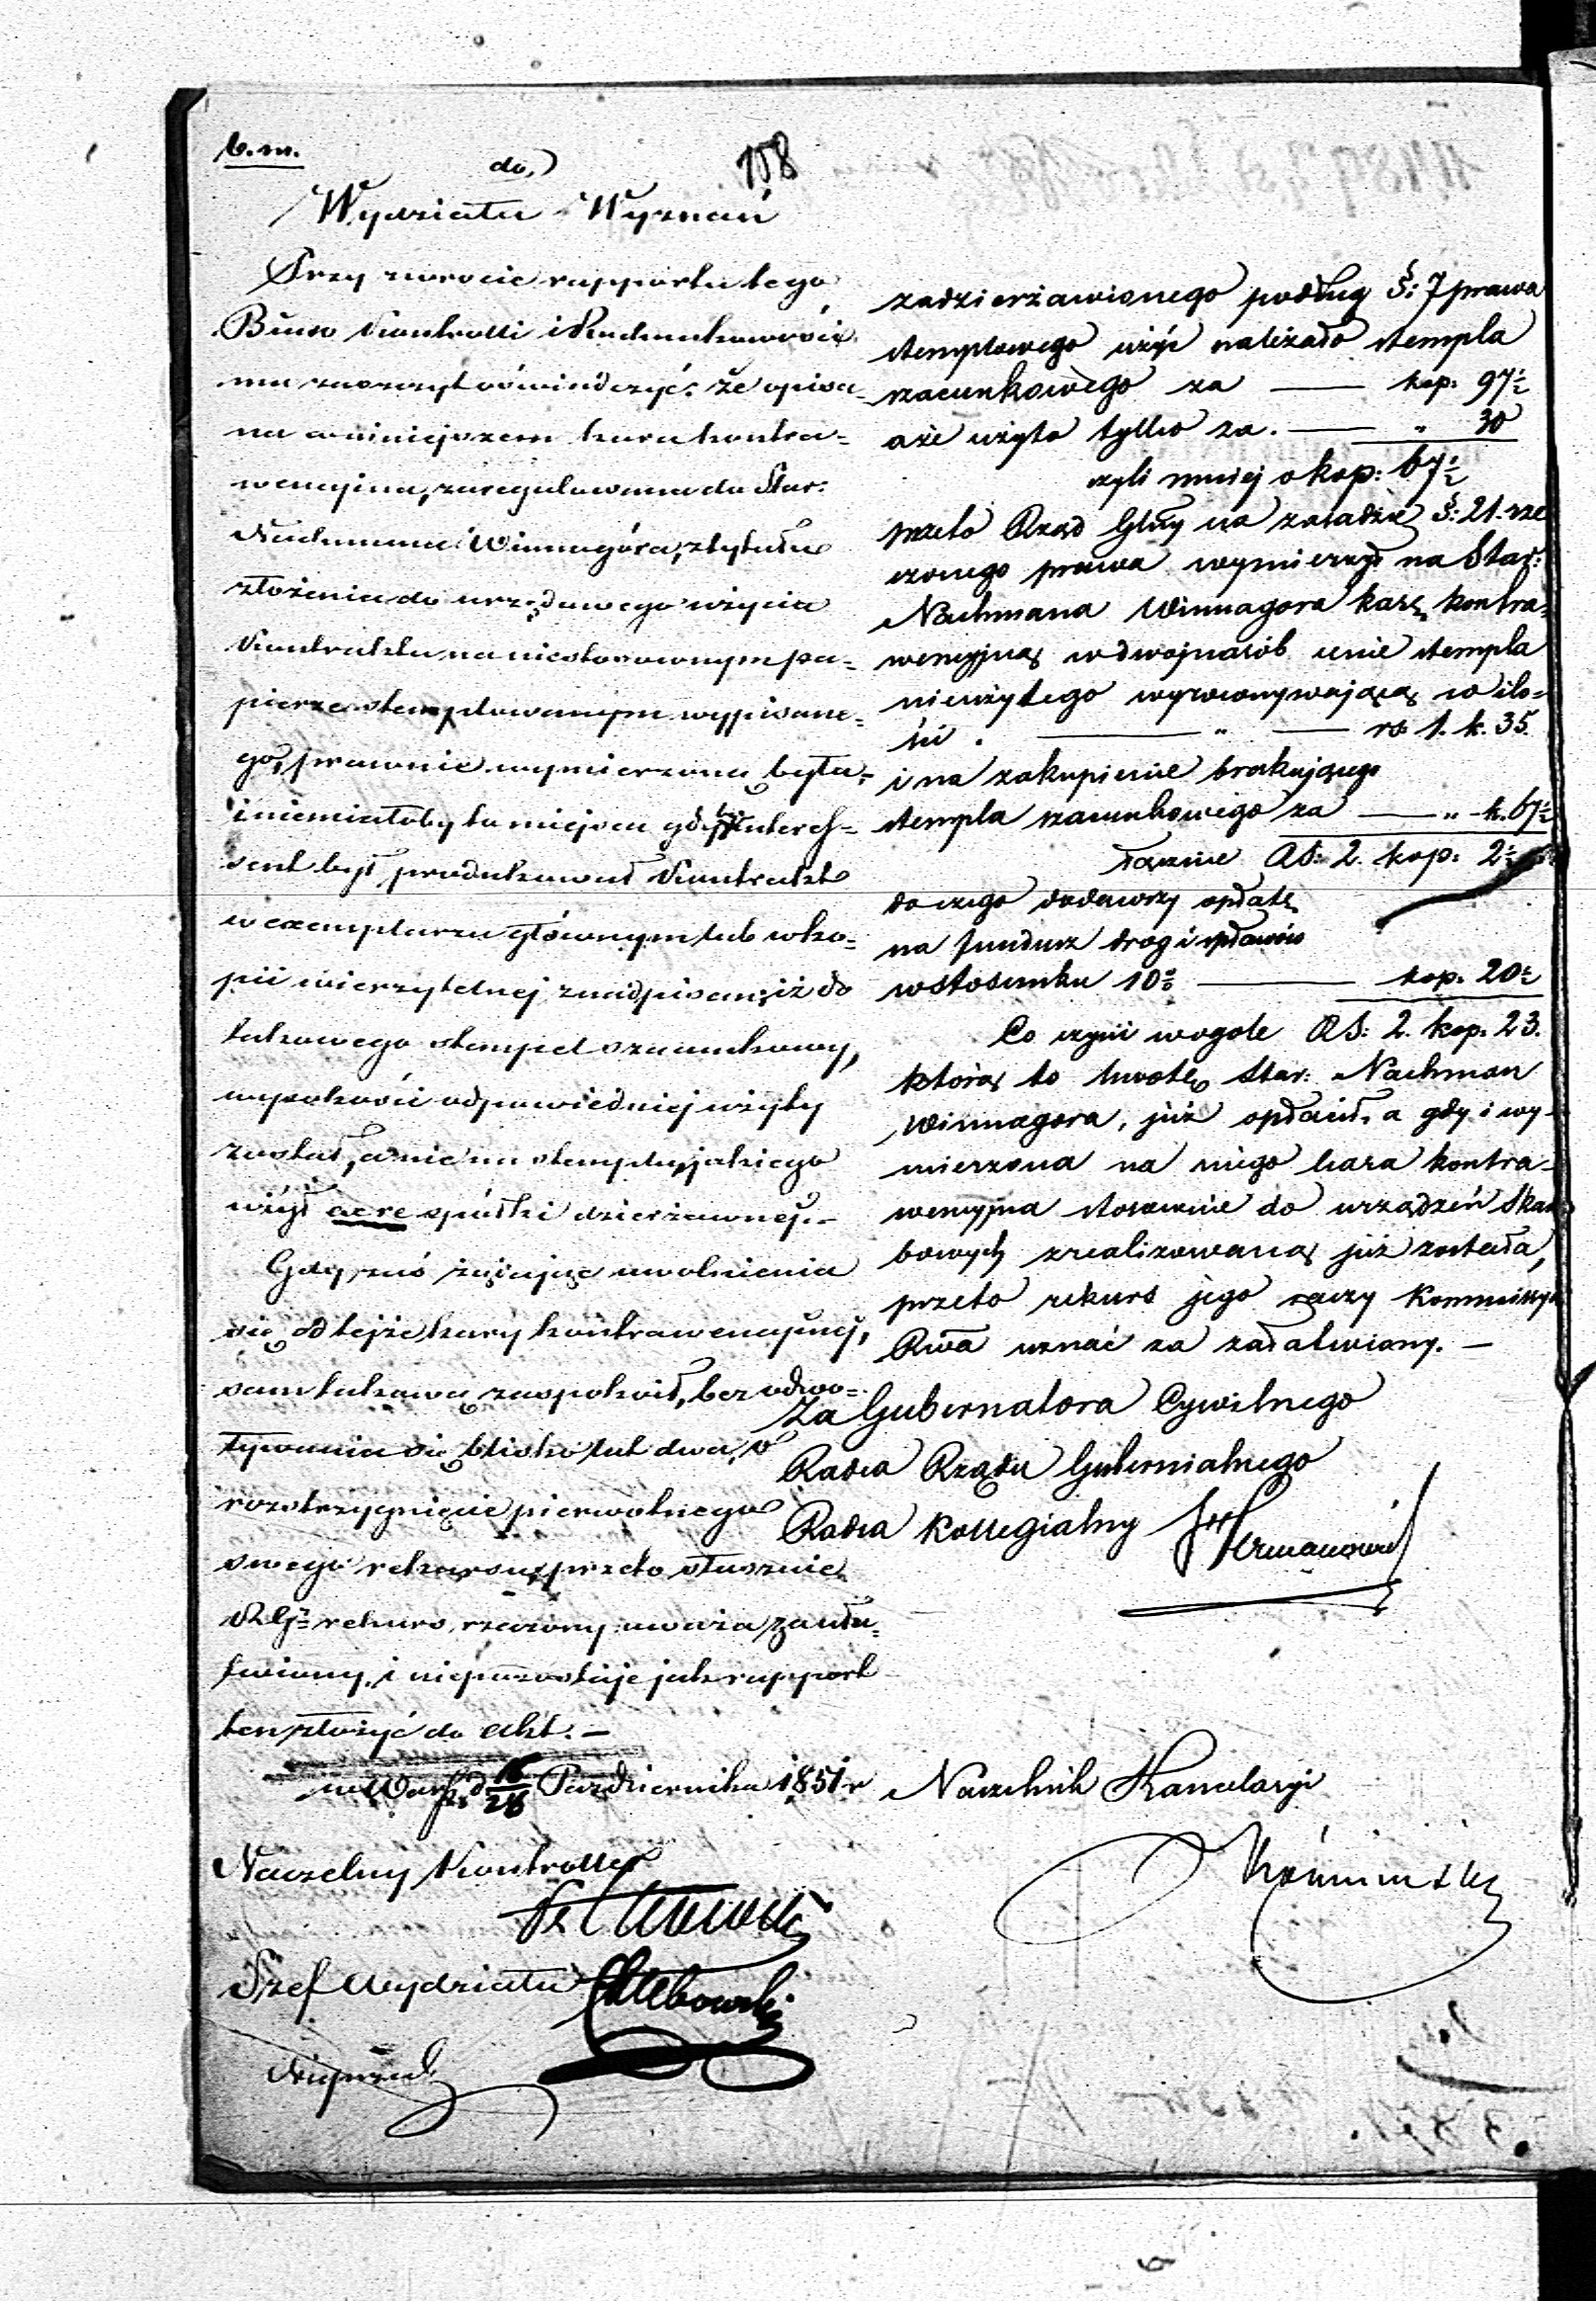 b. m.
158
do
Wydziału Wyznań
Przy zwrocie rapportu tego
Biuro Kontrolli i Rachunkowości
ma zaszczyt oświadczyć: że opisa=
na w niniejszem kara kontra=
wencyjna, zaregulowana do Star:
Nachmana Winnagóra, z tytułu
złożenia do urzędowego użycia
Kontraktu na niestosownym pa=
pierze stemplowanym wypisane=
go, prawnie wymierzoną była
i niemiałoby tu miejsca gdyby interes=
sent był produkował Kontrakt
w exemplarzu głównym lub w ko=
pii wierzytelnej z nadpisem, iż do
takowego stempel szacunkowy,
wysokości odpowiedniej użyty
został, a nie na stemplu, jakiego
użył w re spółki dzierżawnej.—
Gdy zaś żądając uwolnienia
się od tejże kary kontrawencyjnej,
sam takową zaspokoił, bez odwo=
ływania się blisko lat dwa, o
rozstrzygnięcie pierwotnego
swego rekursu, przeto słusznie
RGj. rekurs rzeczony uważa za zała=
twiony, i niepozostaje jak rapport
ten złożyć do akt.—
w Warsz. d 16/28 Października 1851 r
Naczelny Kontroller
Szef Wydziału Chlebowski
zadzierżawionego podług §: 7 prawa
stemplowego użyć należało stempla
szacunkowego za — kop: 97½
a że użyto tylko za. — " 30
czyli mniej o kop: 67½
przeto Rząd Glny na zasadzie §: 21. rze
czonego prawa wymierzył na Star:
Nachmana Winnagora karę kontra=
wencyjną w dwójnasób cenie stempla
nieużytego wyrównywającą w ilo=
ści . — " — rs 1. k. 35.
i na zakupienie brakującego
stempla szacunkowego za — " k. 67½
łącznie RS: 2. kop: 2½
do czego dodawszy opłatę
na fundusz dróg i spławów
w stosunku 10% — kop. 20½
Co czyni wogóle RS: 2. kop. 23.
którą to kwotę Star: Nachman
Winnagora, już opłacił, a gdy i wy=
mierzona na niego kara kontra=
wencyjna stosownie do urządzeń Skar
bowych zrealizowaną już została,
przeto rekurs jego raczy Kommissya
Rwa uznać za załatwiony. —
Za Gubernatora Cywilnego
Radca Rządu Gubernialnego
Radca Kollegialny
Naczelnik Kancelaryi